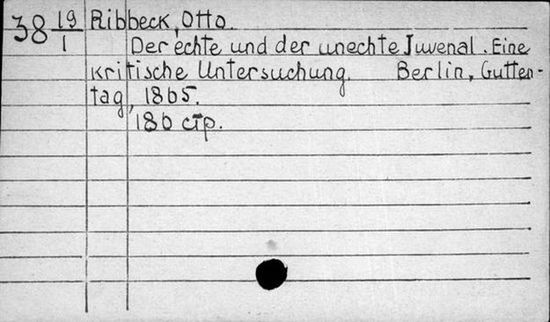 38 19/1 Ribbeck, Otto.
Der echte und der unechte Juvenal. Eine
kritische Untersuchung. Berlin, Gutten-
tag, 1865.
180 стр.